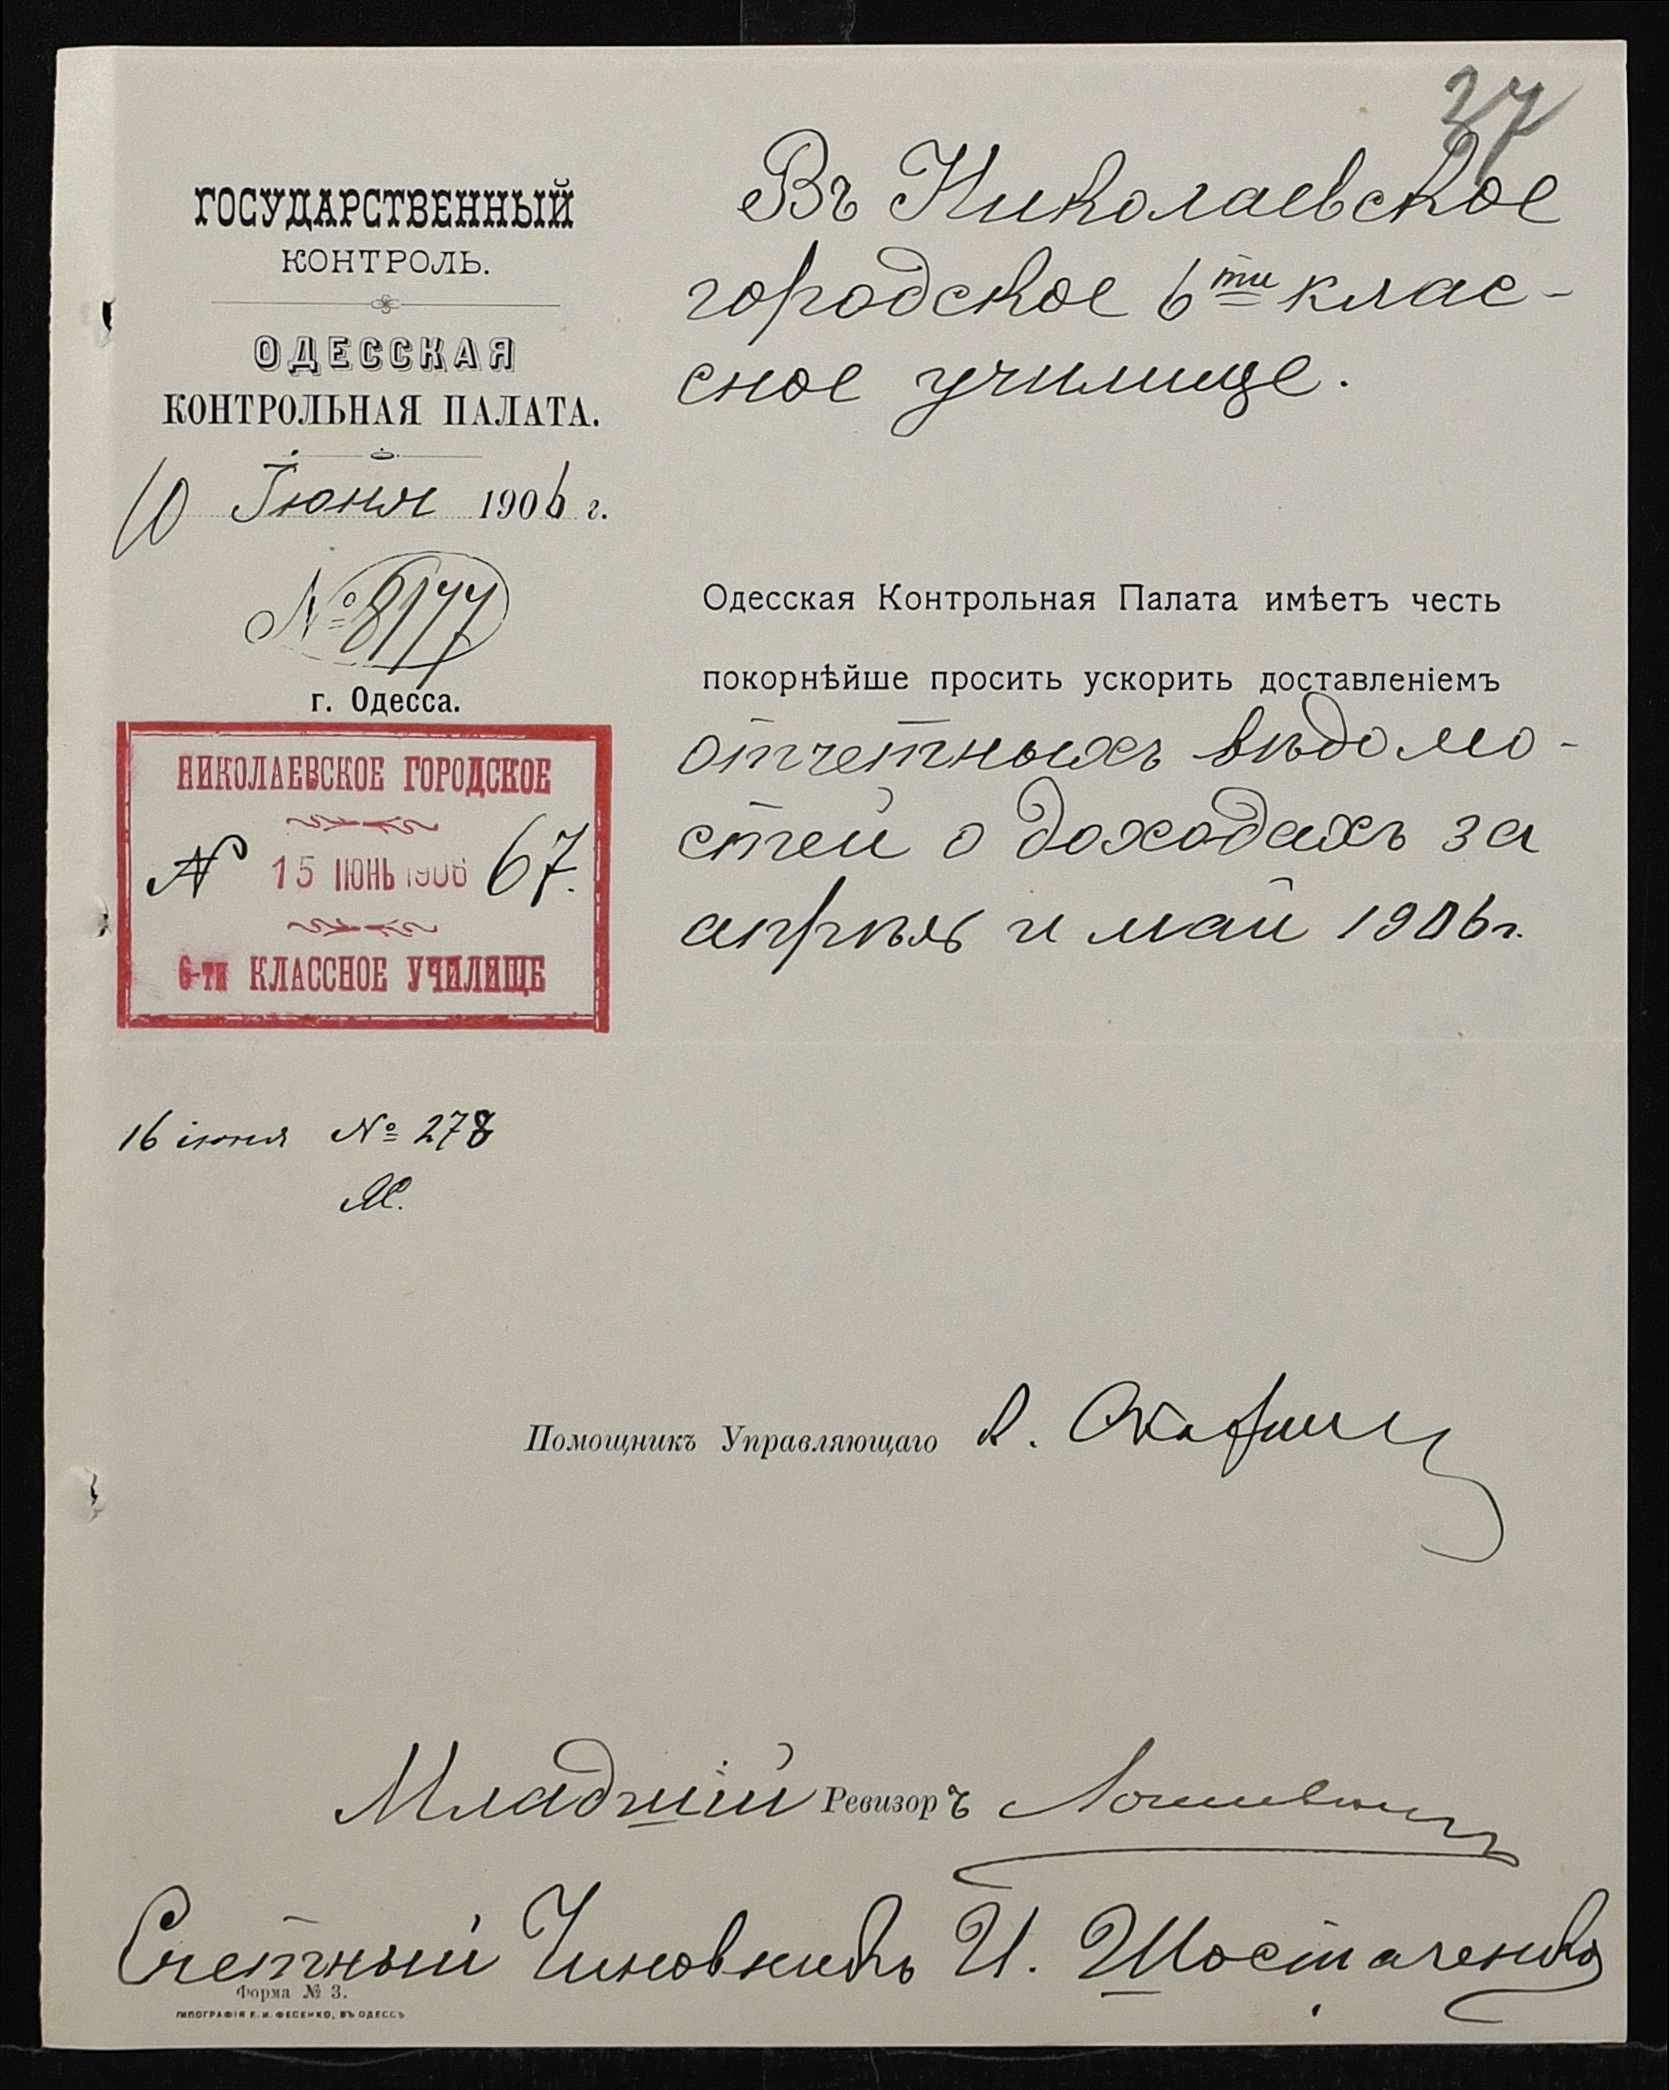 37
ГОСУДАРСТВЕННЫЙ
КОНТРОЛЬ.
ОДЕССКАЯ
КОНТРОЛЬНАЯ ПАЛАТА.
10 Іюня 1906 г.
№ 8177
г. Одесса.
НИКОЛАЕВСКОЕ ГОРОДСКОЕ
№ 15 ІЮНЬ 1906 67.
6-ти КЛАССНОЕ УЧИЛИЩЕ
16 іюня № 278
Въ Николаевское
городское 6ти клас-
сное училище.
Одесская Контрольная Палата имѣетъ честь
покорнѣйше просить ускорить доставленіемъ
отчетныхъ вѣдомо-
стей о доходахъ за
апрѣль и май 1906 г.
Помощникъ Управляющаго
Младшій Ревизоръ
Счетный Чиновникъ И. Шостаченко
Форма № 3.
ТИПОГРАФІЯ Е. И. ФЕСЕНКО, ВЪ ОДЕССѢ